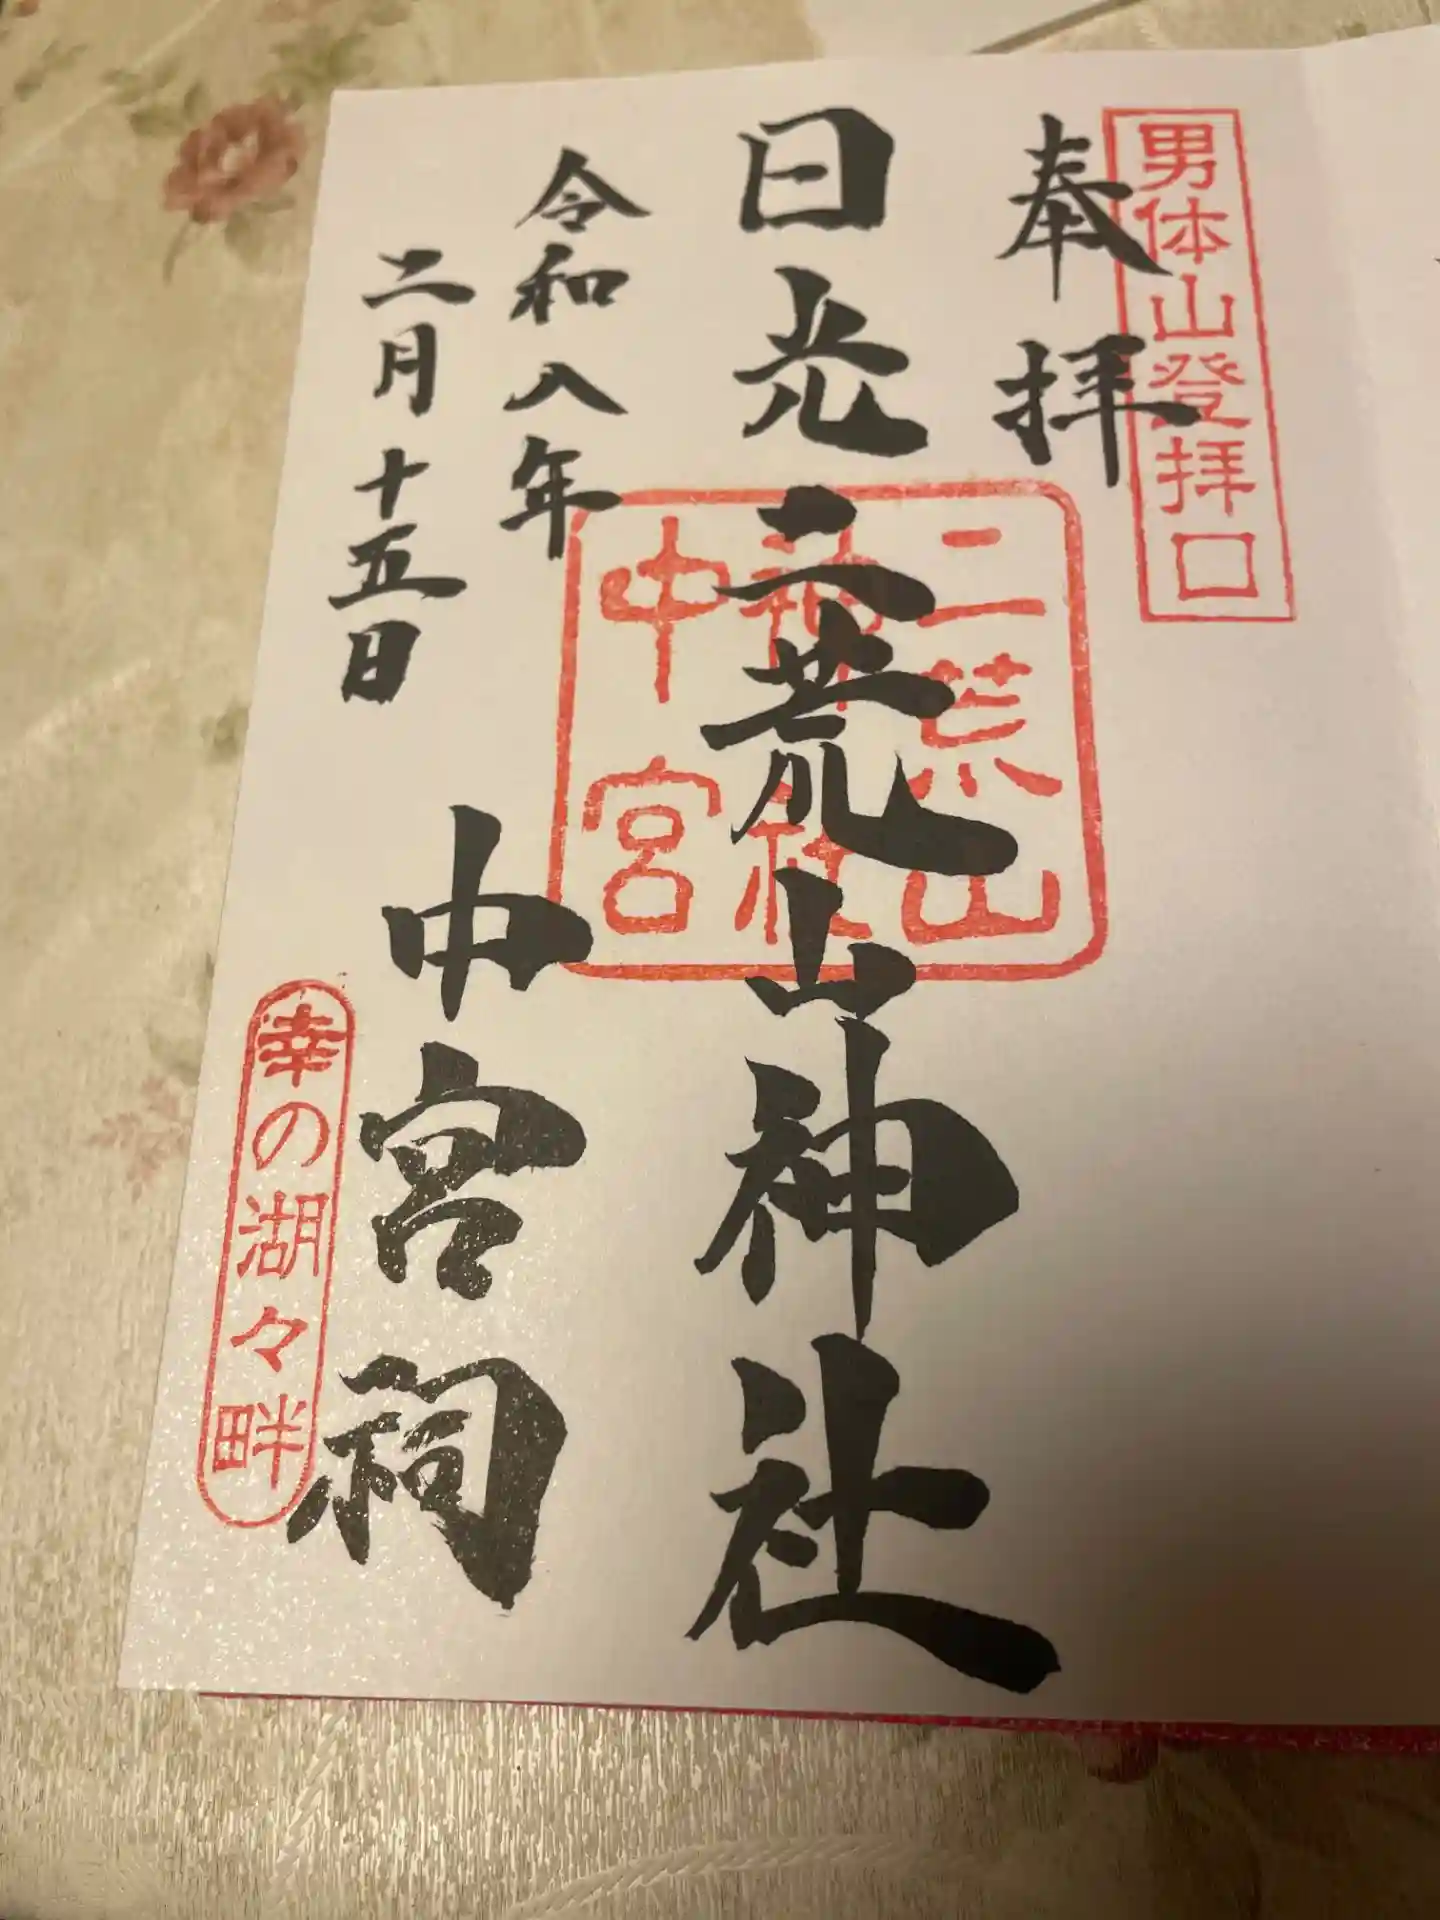 男体山登拝口
奉拝
日光二荒山神社
二荒山
神社
中宮
中宮祠
令和八年
二月十五日
幸の湖々畔